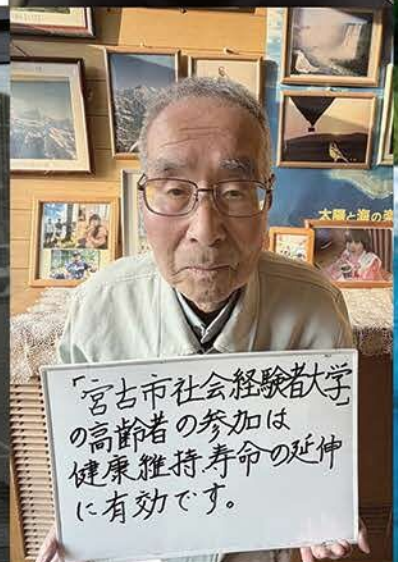 太陽と海の楽
「宮古市社会経験者大学」
の高齢者の参加は
健康維持寿命の延伸
に有効です。